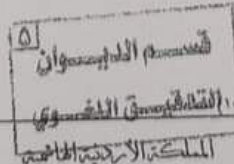 ٥
قسم الديوان
التدقيق اللغوي
المملكة الأردنية الهاشمية